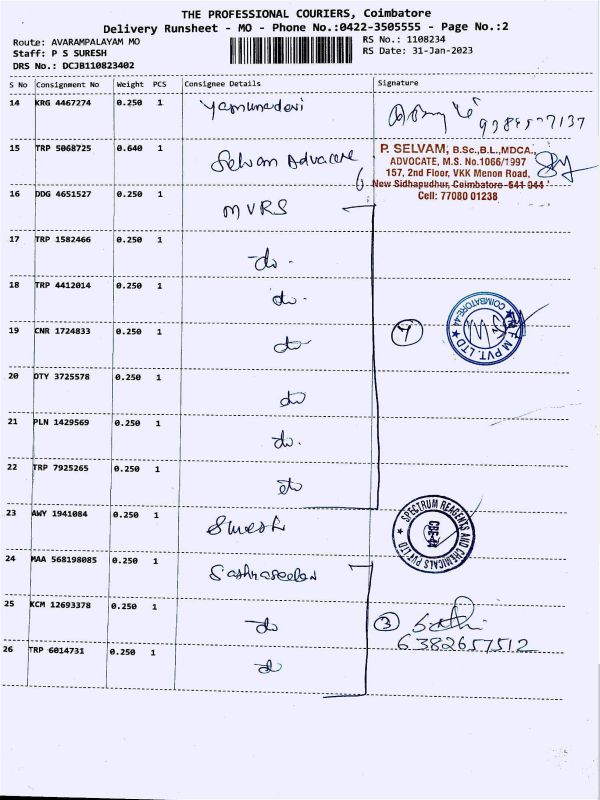 THE PROFESSIONAL COURIERS, Coimbatore
Delivery Runsheet - MO - Phone No.:0422-3505555 - Page No.:2
Route: AVARAMPALAYAM MO
RS No.: 1108234
Staff: P S SURESH
RS Date: 31-Jan-2023
DRS No.: DCJB110823402
S No Consignment No Weight PCS Consignee Details Signature
14 KRG 4467274 0.250 1 Yamunadevi
15 TRP 5068725 0.640 1 Selvam Advocate
P. SELVAM, B.Sc.,B.L.,MDCA.,
ADVOCATE, M.S. No.1066/1997
157, 2nd Floor, VKK Menon Road,
New Sidhapudhur, Coimbatore-641 044
Cell: 77080 01238
16 DDG 4651527 0.250 1 MVRS
17 TRP 1582466 0.250 1 -do-
18 TRP 4412014 0.250 1 do-
19 CNR 1724833 0.250 1 do
7
COIMBATORE-44
M PVT. LTD
20 DTY 3725578 0.250 1 do
21 PLN 1429569 0.250 1 do-
22 TRP 7925265 0.250 1 do
23 AWY 1941084 0.250 1 Suresh
SPECTRUM REAGENTS AND CHEMICALS PVT LTD
24 MAA 568198085 0.250 1
25 KCM 12693378 0.250 1 do
3 Sathi
6382657512
26 TRP 6014731 0.250 1 do